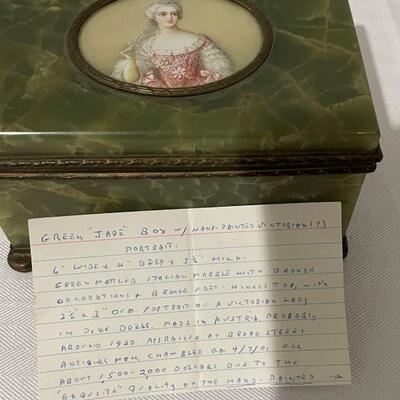 GREEN "JADE" BOX W/ HAND-PAINTED VICTORIAN (?)
PORTRAIT.
6" WIDE X 4" DEEP X 3½" HIGH.
GREEN MOTTLED ITALIAN MARBLE WITH BRONZE
DECORATIONS & BRONZE FEET - HINGED TOP, WITH
3½" X 3" OVAL PORTRAIT OF A VICTORIAN LADY
IN PINK DRESS. MADE IN AUSTRIA, PROBABLY
AROUND 1920 APPRAISED AT BROAD STREET
ANTIQUES MALL, CHAMBLEE GA 4/7/01 FOR
ABOUT 1,500-2,000 DOLLARS DUE TO THE
"EXQUISITE" QUALITY OF THE HAND-PAINTED →